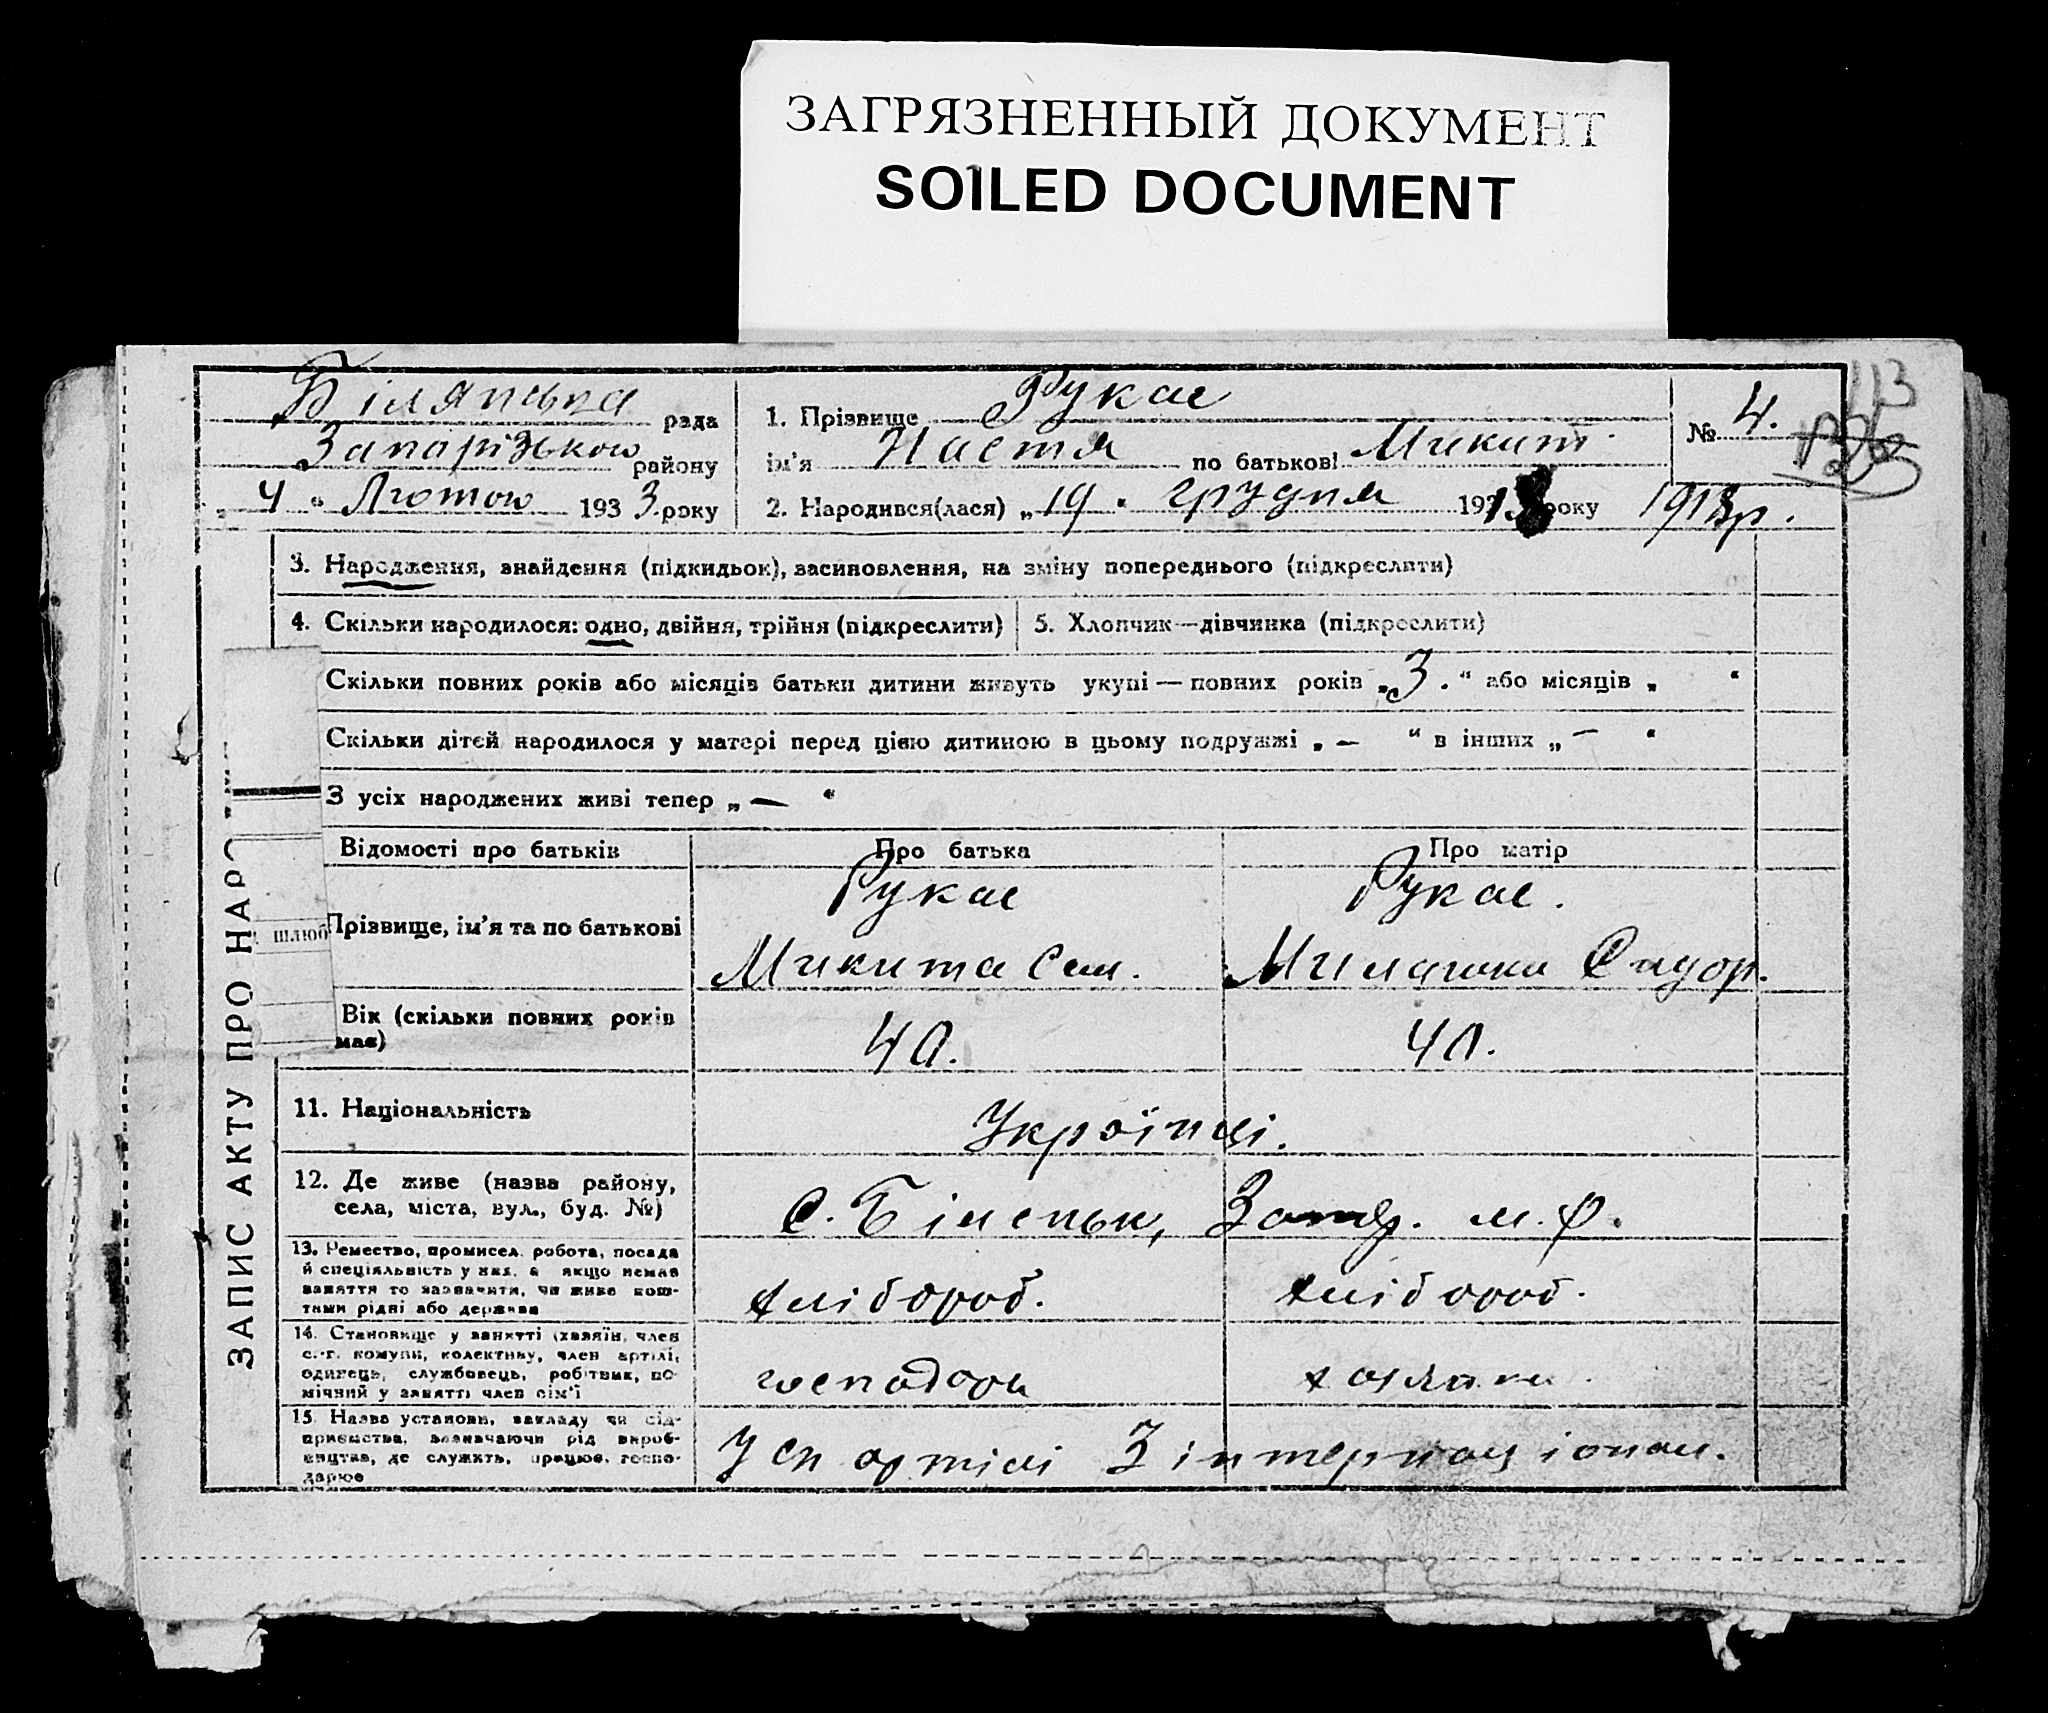 ЗАГРЯЗНЕННЫЙ ДОКУМЕНТ
SOILED DOCUMENT
113
Білянська рада
Запорізького району
„ 4 “ Лютого 1933 року
1. Прізвище Рукас
ім'я Настя по батькові Микит.
2. Народився(лася) „ 19 “ грудня року 1913 р.
№ 4.
3. Народження, знайдення (підкидьок), засиновлення, на зміну попереднього (підкреслити)
4. Скільки народилося: одно, двійня, трійня (підкреслити)
5. Хлопчик—дівчинка (підкреслити)
Скільки повних років або місяців батьки дитини живуть укупі — повних років „ 3. “ або місяців „ “
Скільки дітей народилося у матері перед цією дитиною в цьому подружжі „ — “ в інших „ — “
З усіх народжених живі тепер „ — “
Відомості про батьків
Про батька
Про матір
Прізвище, ім'я та по батькові
Рукас
Микита Сем.
Рукас.
Сидор.
шлюб
Вік (скільки повних років має)
40.
40.
11. Національність
Українці.
12. Де живе (назва району,
села, міста, вул., буд. №)
с.
13. Ремество, промисел, робота, посада
й спеціяльність у них, а якщо немає
заняття то зазначити, чи живе кош-
тами рідні або держави
хлібороб.
хлібороб.
14. Становище у занятті (хазяїн, член
с.-г. комуни, колективу, член артілі,
одинець, службовець, робітник, по-
мічний у занятті член сім'ї
господарі
15. Назва установи, закладу чи під-
приємства, зазначаючи рід вироб-
ництва, де служить, працює, госпо-
дарює
У артілі 3 інтернаціонал.
ЗАПИС АКТУ ПРО НАРО